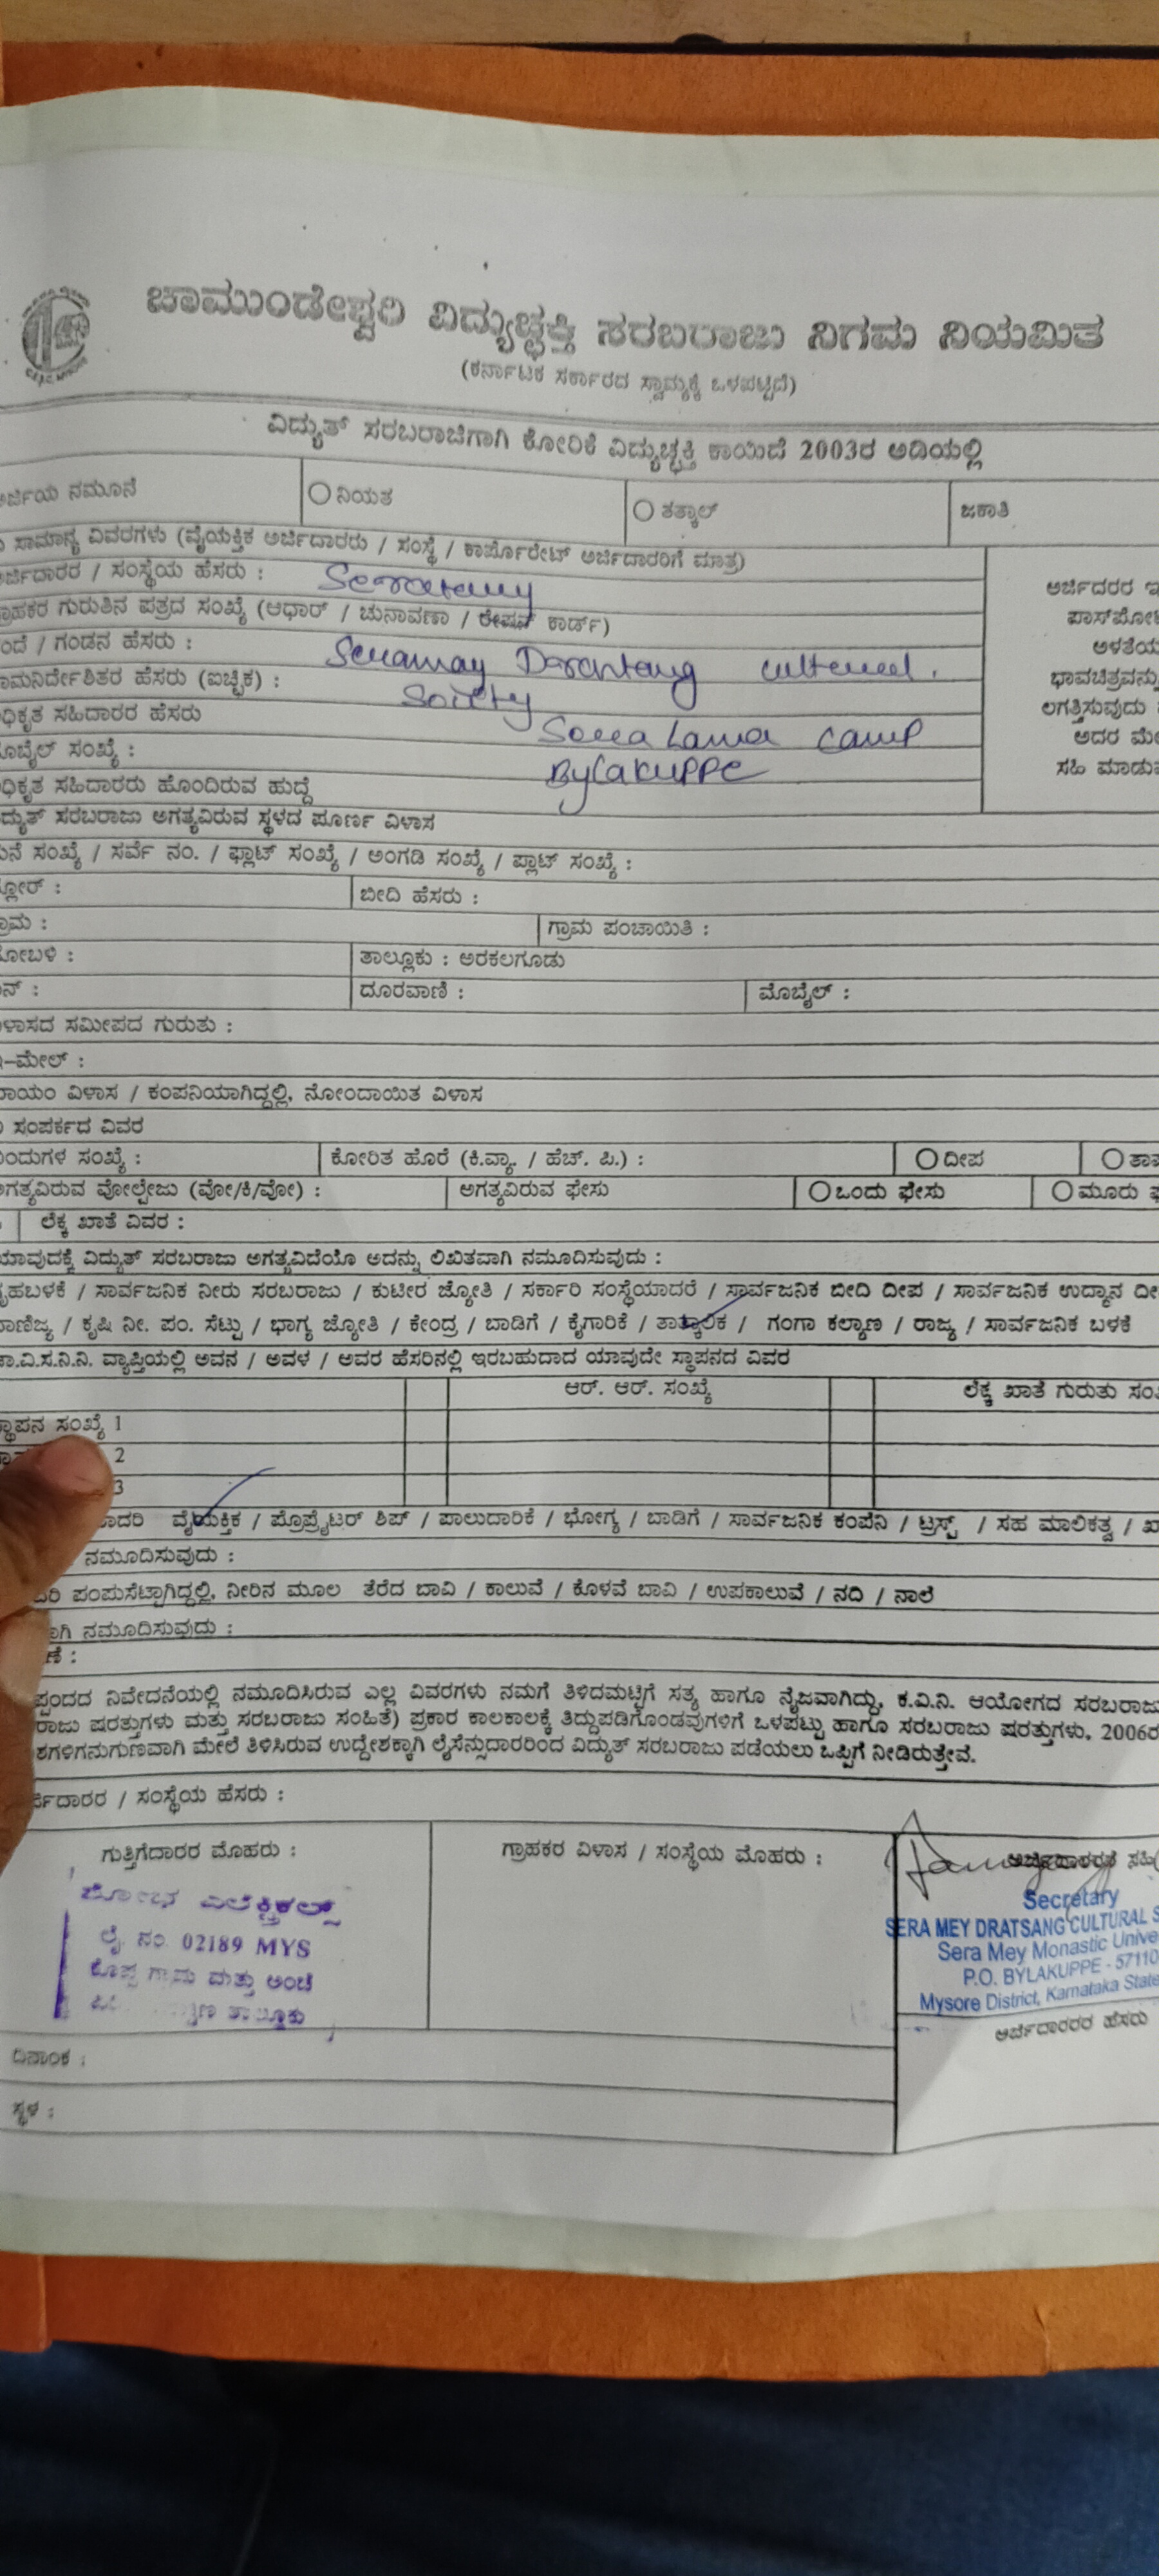 ಚಾಮುಂಡೇಶ್ವರಿ ವಿದ್ಯುಚ್ಛಕ್ತಿ ಸರಬರಾಜು ನಿಗಮ ನಿಯಮಿತ
(ಕರ್ನಾಟಕ ಸರ್ಕಾರದ ಸ್ವಾಮ್ಯಕ್ಕೆ ಒಳಪಟ್ಟಿದೆ)
ವಿದ್ಯುತ್ ಸರಬರಾಜಿಗಾಗಿ ಕೋರಿಕೆ ವಿದ್ಯುಚ್ಛಕ್ತಿ ಕಾಯಿದೆ 2003ರ ಅಡಿಯಲ್ಲಿ
ಅರ್ಜಿಯ ನಮೂನೆ ನಿಯತ ತತ್ಕಾಲ್ ಜಕಾತಿ
ಸಾಮಾನ್ಯ ವಿವರಗಳು (ವೈಯಕ್ತಿಕ ಅರ್ಜಿದಾರರು / ಸಂಸ್ಥೆ / ಕಾರ್ಪೊರೇಟ್ ಅರ್ಜಿದಾರರಿಗೆ ಮಾತ್ರ)
ರ್ಜಿದಾರರ / ಸಂಸ್ಥೆಯ ಹೆಸರು :
ಗ್ರಾಹಕರ ಗುರುತಿನ ಪತ್ರದ ಸಂಖ್ಯೆ (ಆಧಾರ್ / ಚುನಾವಣಾ / ರೇಷನ್ ಕಾರ್ಡ್)
ಂದೆ / ಗಂಡನ ಹೆಸರು : Seramay
ಾಮನಿರ್ದೇಶಿತರ ಹೆಸರು (ಐಚ್ಛಿಕ) : Society
ಧಿಕೃತ ಸಹಿದಾರರ ಹೆಸರು Sera Lama camp
ೊಬೈಲ್ ಸಂಖ್ಯೆ : Bylakuppe
ಧಿಕೃತ ಸಹಿದಾರರು ಹೊಂದಿರುವ ಹುದ್ದೆ
ಅರ್ಜಿದರರ ಇ
ಪಾಸ್‌ಪೋರ್ಟ
ಅಳತೆಯ
ಭಾವಚಿತ್ರವನ್ನು
ಲಗತ್ತಿಸುವುದು
ಅದರ ಮೇ
ಸಹಿ ಮಾಡುವ
ದ್ಯುತ್ ಸರಬರಾಜು ಅಗತ್ಯವಿರುವ ಸ್ಥಳದ ಪೂರ್ಣ ವಿಳಾಸ
ನೆ ಸಂಖ್ಯೆ / ಸರ್ವೆ ನಂ. / ಫ್ಲಾಟ್ ಸಂಖ್ಯೆ / ಅಂಗಡಿ ಸಂಖ್ಯೆ / ಪ್ಲಾಟ್ ಸಂಖ್ಯೆ :
್ಲೋರ್ : ಬೀದಿ ಹೆಸರು :
್ರಾಮ : ಗ್ರಾಮ ಪಂಚಾಯಿತಿ :
ೋಬಳಿ : ತಾಲ್ಲೂಕು : ಅರಕಲಗೂಡು
ನ್ : ದೂರವಾಣಿ : ಮೊಬೈಲ್ :
ಳಾಸದ ಸಮೀಪದ ಗುರುತು :
ಇ-ಮೇಲ್ :
ಾಯಂ ವಿಳಾಸ / ಕಂಪನಿಯಾಗಿದ್ದಲ್ಲಿ, ನೋಂದಾಯಿತ ವಿಳಾಸ
ಸಂಪರ್ಕದ ವಿವರ
ಂದುಗಳ ಸಂಖ್ಯೆ : ಕೋರಿತ ಹೊರೆ (ಕಿ.ವ್ಯಾ. / ಹೆಚ್. ಪಿ.) : ದೀಪ ತಾಪ
ಅಗತ್ಯವಿರುವ ವೋಲ್ಟೇಜು (ವೋ/ಕಿ/ವೋ) : ಅಗತ್ಯವಿರುವ ಫೇಸು ಒಂದು ಫೇಸು ಮೂರು ಫ
ಲೆಕ್ಕ ಖಾತೆ ವಿವರ :
ಯಾವುದಕ್ಕೆ ವಿದ್ಯುತ್ ಸರಬರಾಜು ಅಗತ್ಯವಿದೆಯೊ ಅದನ್ನು ಲಿಖಿತವಾಗಿ ನಮೂದಿಸುವುದು :
ೃಹಬಳಕೆ / ಸಾರ್ವಜನಿಕ ನೀರು ಸರಬರಾಜು / ಕುಟೀರ ಜ್ಯೋತಿ / ಸರ್ಕಾರಿ ಸಂಸ್ಥೆಯಾದರೆ / ಸಾರ್ವಜನಿಕ ಬೀದಿ ದೀಪ / ಸಾರ್ವಜನಿಕ ಉದ್ಯಾನ ದೀ
ವಾಣಿಜ್ಯ / ಕೃಷಿ ನೀ. ಪಂ. ಸೆಟ್ಟು / ಭಾಗ್ಯ ಜ್ಯೋತಿ / ಕೇಂದ್ರ / ಬಾಡಿಗೆ / ಕೈಗಾರಿಕೆ / ತಾತ್ಕಾಲಿಕ / ಗಂಗಾ ಕಲ್ಯಾಣ / ರಾಜ್ಯ / ಸಾರ್ವಜನಿಕ ಬಳಕೆ
ಚಾ.ವಿ.ಸ.ನಿ.ನಿ. ವ್ಯಾಪ್ತಿಯಲ್ಲಿ ಅವನ / ಅವಳ / ಅವರ ಹೆಸರಿನಲ್ಲಿ ಇರಬಹುದಾದ ಯಾವುದೇ ಸ್ಥಾಪನದ ವಿವರ
ಆರ್. ಆರ್. ಸಂಖ್ಯೆ ಲೆಕ್ಕ ಖಾತೆ ಗುರುತು ಸಂಖ
ಸ್ಥಾಪನ ಸಂಖ್ಯೆ 1
2
3
ಾದರಿ ವೈಯಕ್ತಿಕ / ಪ್ರೊಪ್ರೈಟರ್ ಶಿಪ್ / ಪಾಲುದಾರಿಕೆ / ಭೋಗ್ಯ / ಬಾಡಿಗೆ / ಸಾರ್ವಜನಿಕ ಕಂಪೆನಿ / ಟ್ರಸ್ಟ್ / ಸಹ ಮಾಲಿಕತ್ವ / ಖಾ
ನಮೂದಿಸುವುದು :
ರಿ ಪಂಪುಸೆಟ್ಟಾಗಿದ್ದಲ್ಲಿ, ನೀರಿನ ಮೂಲ ತೆರೆದ ಬಾವಿ / ಕಾಲುವೆ / ಕೊಳವೆ ಬಾವಿ / ಉಪಕಾಲುವೆ / ನದಿ / ನಾಲೆ
ಾಗಿ ನಮೂದಿಸುವುದು :
ಣೆ :
ಪ್ಪಂದದ ನಿವೇದನೆಯಲ್ಲಿ ನಮೂದಿಸಿರುವ ಎಲ್ಲ ವಿವರಗಳು ನಮಗೆ ತಿಳಿದಮಟ್ಟಿಗೆ ಸತ್ಯ ಹಾಗೂ ನೈಜವಾಗಿದ್ದು, ಕ.ವಿ.ನಿ. ಆಯೋಗದ ಸರಬರಾಜು
ರಾಜು ಷರತ್ತುಗಳು ಮತ್ತು ಸರಬರಾಜು ಸಂಹಿತೆ) ಪ್ರಕಾರ ಕಾಲಕಾಲಕ್ಕೆ ತಿದ್ದುಪಡಿಗೊಂಡವುಗಳಿಗೆ ಒಳಪಟ್ಟು ಹಾಗೂ ಸರಬರಾಜು ಷರತ್ತುಗಳು, 2006ರ
ಶಗಳಿಗನುಗುಣವಾಗಿ ಮೇಲೆ ತಿಳಿಸಿರುವ ಉದ್ದೇಶಕ್ಕಾಗಿ ಲೈಸೆನ್ಸುದಾರರಿಂದ ವಿದ್ಯುತ್ ಸರಬರಾಜು ಪಡೆಯಲು ಒಪ್ಪಿಗೆ ನೀಡಿರುತ್ತೇವೆ.
ರ್ಜಿದಾರರ / ಸಂಸ್ಥೆಯ ಹೆಸರು :
ಗುತ್ತಿಗೆದಾರರ ಮೊಹರು : ಗ್ರಾಹಕರ ವಿಳಾಸ / ಸಂಸ್ಥೆಯ ಮೊಹರು : ಅರ್ಜಿದಾರರ ಸಹಿ(
ಎಲೆಕ್ಟ್ರಿಕಲ್ಸ್
ಲೈ. ನಂ. 02189 MYS
ಕೊಪ್ಪ ಗ್ರಾಮ ಮತ್ತು ಅಂಚೆ
ತಾಲ್ಲೂಕು
Secretary
SERA MEY DRATSANG CULTURAL S
Sera Mey Monastic Unive
P.O. BYLAKUPPE - 57110
Mysore District, Karnataka State
ಅರ್ಜಿದಾರರರ ಹೆಸರು
ದಿನಾಂಕ :
ಸ್ಥಳ :